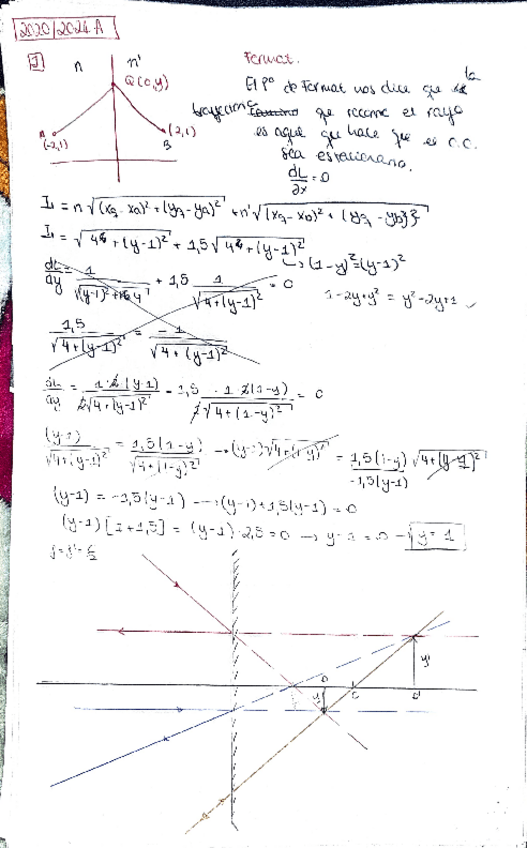 2020/2021 A
1
n n'
Q(0,y)
A (-2,1)
(2,1) B
Fermat.
El Pº de Fermat nos dice que la
trayectoria que recorre el rayo
es aquel que hace que el C.O.
sea estacionario.
dL/∂x = 0
L = n√((xq - xa)² + (yq - ya)²) + n'√((xq - xb)² + (yq - yb)²)
L = √(4 + (y-1)²) + 1,5√(4 + (y-1)²)
↳ (1-y)² = (y-1)²
1-2y+y² = y²-2y+1 ✓
dL/dy = 1/√((y-1)²+4) + 1,5 1/√(4+(y-1)²) = 0
1,5/√(4+(y-1)²) = -1/√(4+(y-1)²)
∂L/∂y = 1·2(y-1)/2√(4+(y-1)²) - 1,5 · 1·2(1-y)/2√(4+(1-y)²) = 0
(y-1)/√(4+(y-1)²) = 1,5(1-y)/√(4+(1-y)²) → (y-1)√(4+(1-y)²) = 1,5(1-y)√(4+(y-1)²)
-1,5(y-1)
(y-1) = -1,5(y-1) → (y-1)+1,5(y-1) = 0
(y-1)[1+1,5] = (y-1)·2,5 = 0 → y-1 = 0 → y = 1
O C O'
y y'